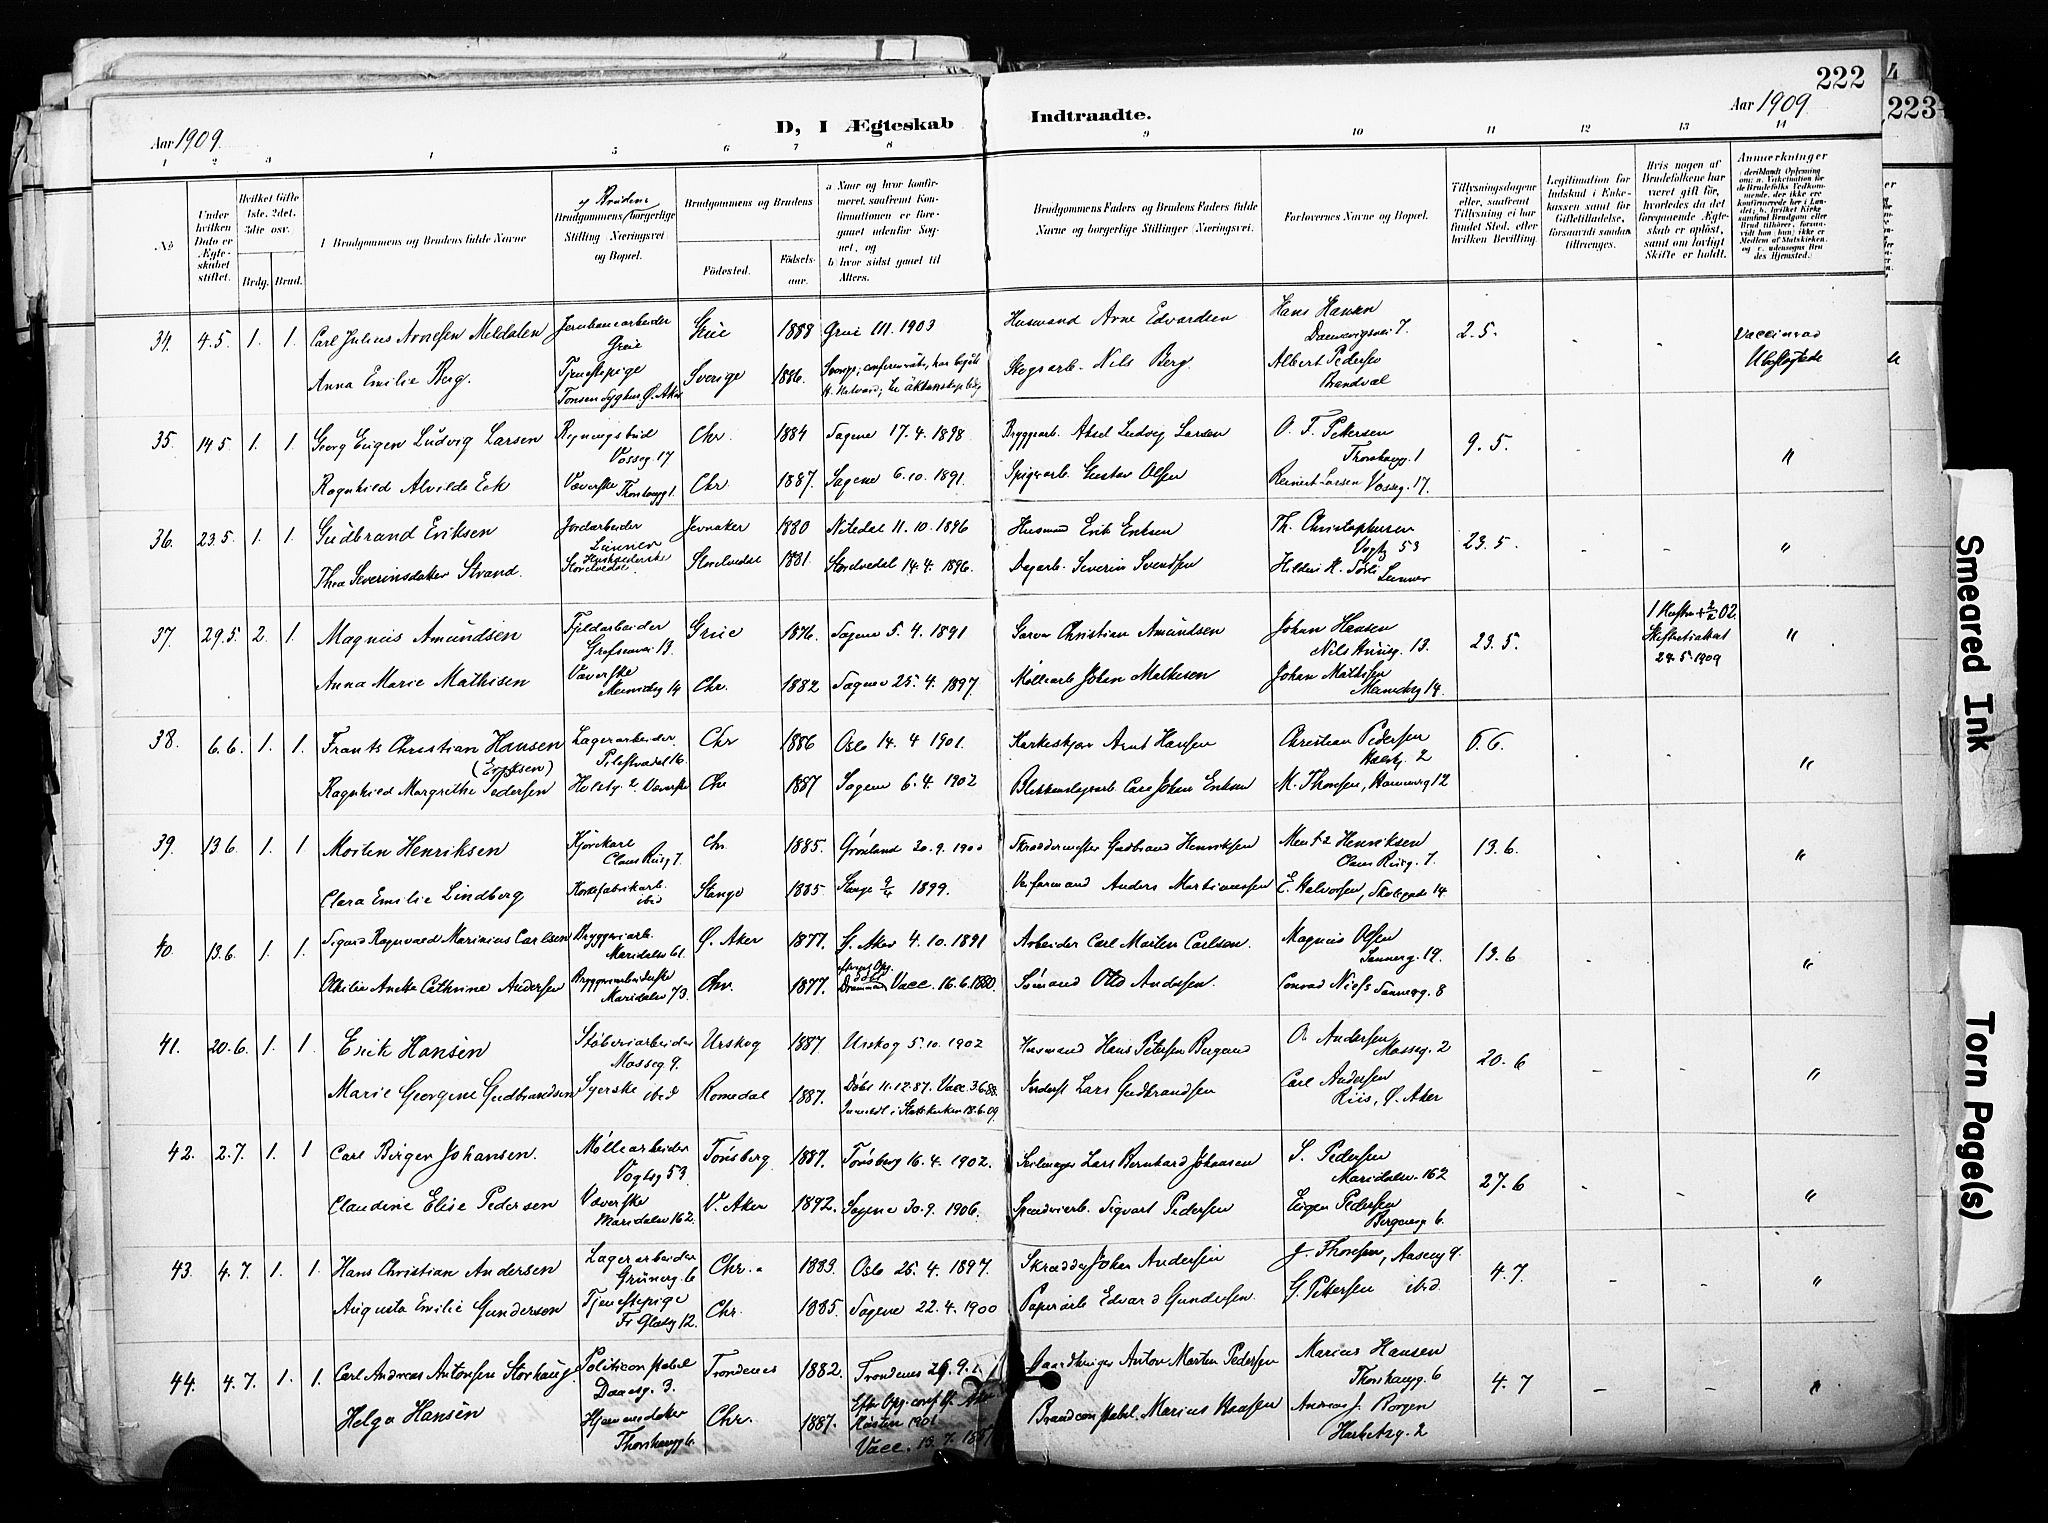 222
223
4
Aar 1909.
D, I Ægteskab Indtraadte.
Aar 1909
1 2 3 4 5 6 7 8 9 10 11 12 13 14
No
Under hvilken Dato er Ægteskabet stiftet.
Hvilket Gifte 1ste, 2det, 3die osv.
Brdg. Brud.
Brudgommens og Brudens fulde Navne
og Brudens
Brudgommens borgerlige Stilling (Næringsvei) og Bopæl.
Brudgommens og Brudens
Födested.
Födselsaar.
a. Naar og hvor konfirmeret, saafremt Konfirmationen er foregaaet udenfor Sognet, og
b. hvor sidst gaaet til Alters.
Brudgommens Faders og Brudens Faders fulde Navne og borgerlige Stillinger (Næringsvei).
Forlovernes Navne og Bopæl.
Tillysningsdagene eller, saafremt Tillysning ei har fundet Sted, efter hvilken Bevilling.
Legitimation for Indskud i Enkekassen samt for Giftetilladelse, forsaavidt saadan tiltrænges.
Hvis nogen af Brudefolkene har været gift för, hvorledes da det foregaaende Ægteskab er oplöst, samt om lovligt Skifte er holdt.
Anmærkninger
34. 4.5. 1. 1. Carl Julius Arnesen Meldalen Jernbanearbeider Grue Grue 1888 Grue 1903 Husmand Arne Edvardsen Hans Hansen 2.5. Vaccinerad
Anna Emilie Berg. Tjenestepige Sverige 1886. Skogsarb. Nils Berg. Albert Pedersen Brandval
35. 14.5 1. 1. Georg Eugen Ludvig Larsen Vosseg. 17 Chr. 1884 Sagene 17.4.1898. Bryggarb. Aksel Ludvig Larsen O. F. Pettersen Thorshaugg. 1 9.5. "
Ragnhild Alvilde Eek Væverske Thorshaugg 1. Chr. 1887. Sagene 6.10.1891. Gustav Olsen Reinert Larsen Vosseg. 17.
36. 23.5. 1. 1. Gudbrand Eriksen Jordarbeider Lunner Jevnaker 1880 Nitedal 11.10.1896 Husmand Erik Eriksen Th. Christophersen Vogtg 53 23.5. "
Thea Severinsdatter Strand. Storelvedal Storelvedal 1881. Storelvedal 14.4.1896. Dagarb. Severin Svendsen Lunner
37. 29.5. 2. 1. Magnus Amundsen Grue 1876. Sagene 5.4.1891 Garver Christian Amundsen Johan Hansen Nils Huusg. 13. 23.5. 24.5.1909 "
Anna Marie Mathisen Væverske 14 Chr. 1882 Sagene 25.4.1897 Møllearb Johan Mathisen Johan Mathisen 14.
38. 6.6. 1. 1. Frants Christian Hansen Lagerarbeider Pilestrædet 16. Chr 1886 Oslo 14.4 1901. Arnt Hansen Christian Pedersen Holstg. 2 6.6. "
(Eriksen)
Ragnhild Margrethe Pedersen Holstg. 2. Væverske Chr 1887 Sagene 6.4.1902 Carl Johan Eriksen M. Thoresen, 12
39. 13.6. 1. 1 Morten Henriksen Kjørekarl Claus Riisg 7. Chr. 1885. Grønland 20.9.1900 Skræddermester Gudbrand Henriksen Henriksen Claus Riisg. 7. 13.6. "
Clara Emilie Lindberg ibid Stange 1885 Stange 1899. Anders Martinussen E. Halvorsen, 14.
40. 13.6. 1. 1. Sigurd Ragnvald Marinius Carlsen Bryggeriarb. Maridalsv 61. Ø. Aker 1877. Ø. Aker 4.10.1891 Arbeider Carl Morten Carlsen. Magnus Olsen Sannerg. 19. 13.6 "
Othilie Anette Cathrine Andersen Bryggeriarbeiderske Maridalsv 73. Chr. 1877. Drammen Vacc. 16.6.1880. Sømand Otto Andersen. Conrad Niels Sannerg. 8
41. 20.6. 1. 1. Erik Hansen Støberiarbeider Mosseg 9. Urskog 1887 Urskog 5.10.1902 Husmand Hans Petersen O. Andersen Mosseg. 2 20.6 "
Marie Georgine Gudbrandsen Syerske ibid Romedal 1887. Døbt 11.12.87. Vacc. 3.6.88. Lars Gudbrandsen Carl Andersen Riis, Ø. Aker
Indmeldt i Statskirken 18.6.09.
42. 2.7. 1. 1 Carl Birger Johansen. Møllearbeider Vogtsg 53. Tønsberg 1887. Tønsberg 16.4.1902. Seilmager Lars Bernhard Johansen S. Pedersen Maridalsv. 162 27.6 "
Claudine Elise Pedersen Væverske Maridalsv 162. V. Aker 1892. Sagene 30.9.1906. Sigvart Pedersen Eugen Pedersen 6.
43. 4.7. 1. 1. Hans Christian Andersen Lagerarbeider Grünerg 6 Chr. 1883. Oslo 25.4.1897. Skrædder Johan Andersen J. Thoresen, Aaseng 9. 4.7. "
Augusta Emilie Gundersen Tjenestepige 12. Chr. 1885. Sagene 22.4.1900 Papirarb Edvard Gundersen. G. Pettersen ibid.
44. 4.7. 1. 1. Carl Andreas Antonsen Storhaug. Politiconstabel Daasg. 3. Trondenes 1882. Trondenes 26.9. Gaardbruger Anton Morten Pedersen Marius Hansen Thorshaugg. 6 4.7 "
Helga Hansen Hjemmedatter Thorshaugg 6. Chr. 1887. Høsten 1901 Vacc. 13.7. Brandconstabel Marius Hansen Andreas J. Borgen 2
Smeared Ink
Torn Page(s)